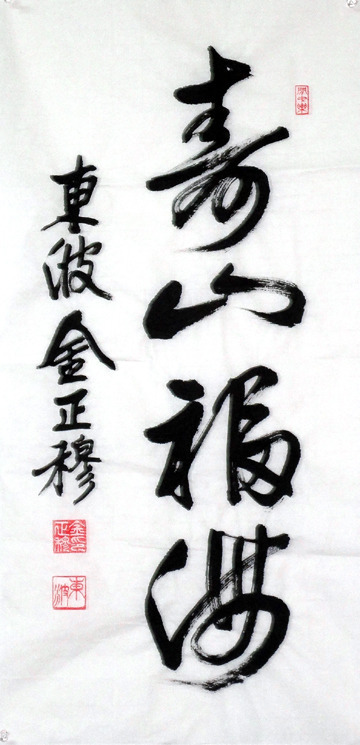 寿山福海
東波金正穆
金正穆印
東波